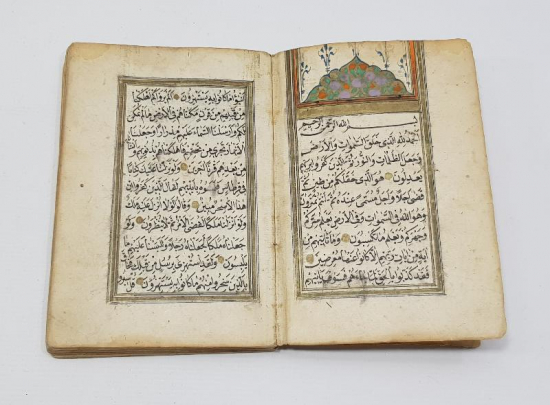 بسم الله الرحمن الرحيم
الحمد لله الذي خلق السموات والارض
وجعل الظلمات والنور ثم الذين كفروا بربهم
يعدلون هو الذي خلقكم من طين ثم
قضى اجلا واجل مسمى عنده ثم انتم تمترون
وهو الله في السموات وفي الارض يعلم سركم و
جهركم ويعلم ما تكسبون وما تأتيهم من
اية من ايات ربهم الا كانوا عنها معرضين
فقد كذبوا بالحق لما جاءهم فسوف يأتيهم
انبؤا ما كانوا به يستهزؤن الم يروا كم اهلكنا
من قبلهم من قرن مكناهم في الارض ما لم نمكن
لكم وارسلنا السماء عليهم مدرارا وجعلنا
الانهار تجري من تحتهم فاهلكناهم بذنوبهم وانشأنا
من بعدهم قرنا اخرين ولو نزلنا عليك كتابا
في قرطاس فلمسوه بايديهم لقال الذين كفروا ان
هذا الا سحر مبين وقالوا لولا انزل عليه ملك
ولو انزلنا ملكا لقضي الامر ثم لا ينظرون ولو
جعلناه ملكا لجعلناه رجلا وللبسنا عليهم ما
يلبسون ولقد استهزئ برسل من قبلك فحاق
بالذين سخروا منهم ما كانوا به يستهزؤن قل